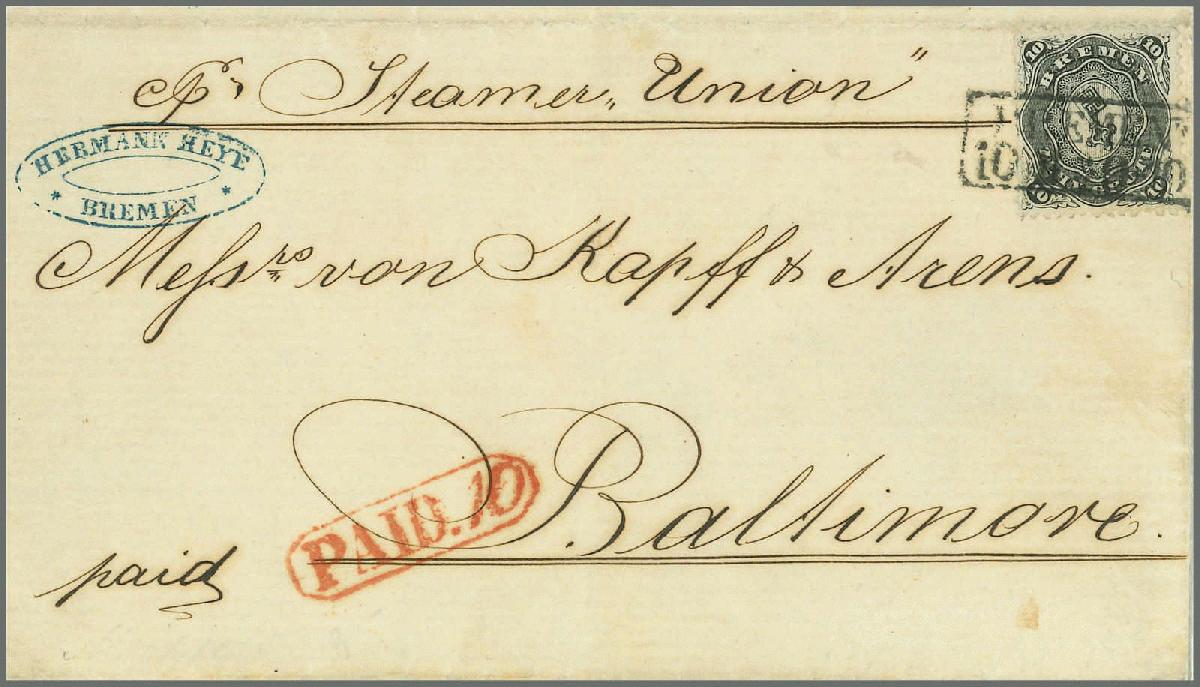 pr Steamer „Union"
10 BREMEN 10
HERMANN HEYE
* BREMEN *
BREMEN
10
10 10
Messrs von Kapff & Arens.
PAID. 10
Baltimore.
paid